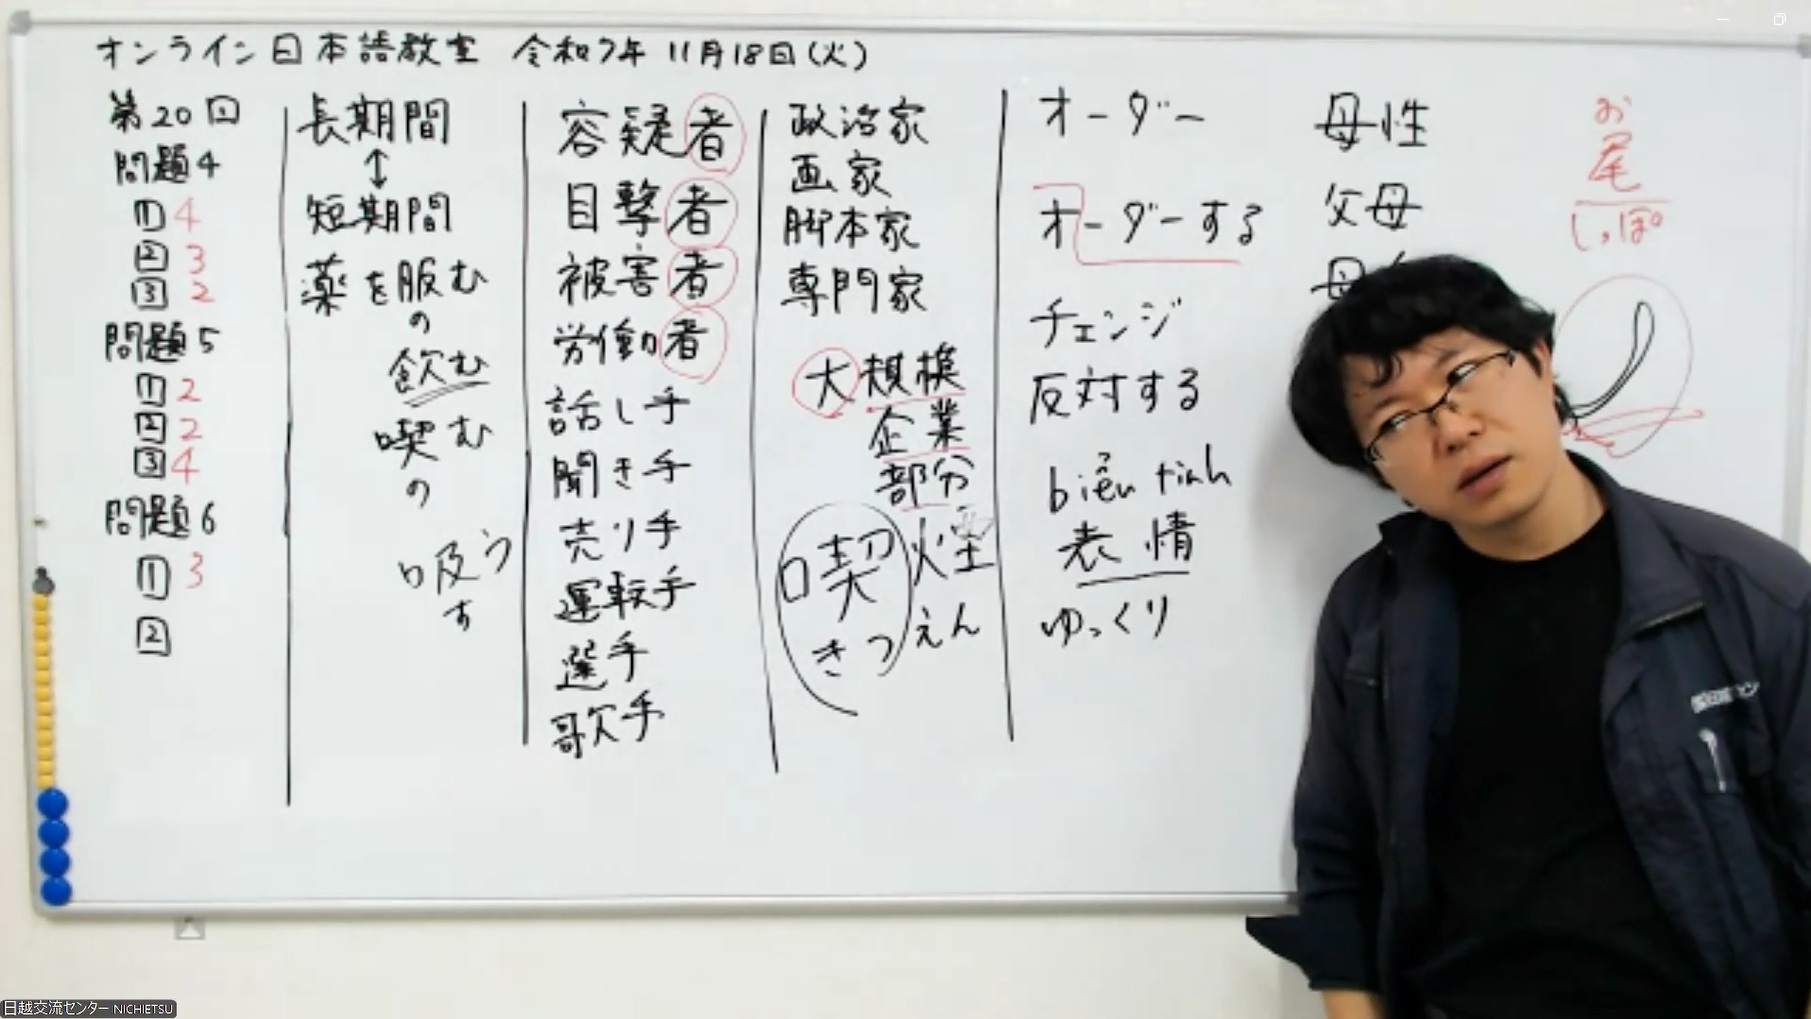 オンライン日本語教室 令和7年 11月18日(火)
第20回
問題4
1 4
2 3
3 2
問題5
1 2
2 2
3 4
問題6
1 3
2
長期間
↕
短期間
薬を服む
の
飲む
喫む
の
吸う
す
容疑者
目撃者
被害者
労働者
話し手
聞き手
売り手
運転手
選手
歌手
政治家
画家
脚本家
専門家
大規模
企業
部分
喫煙
きつえん
オーダー
オーダーする
チェンジ
反対する
biểu tình
表情
ゆっくり
母性
父母
母
お
尾
しっぽ
日越交流センター NICHIETSU